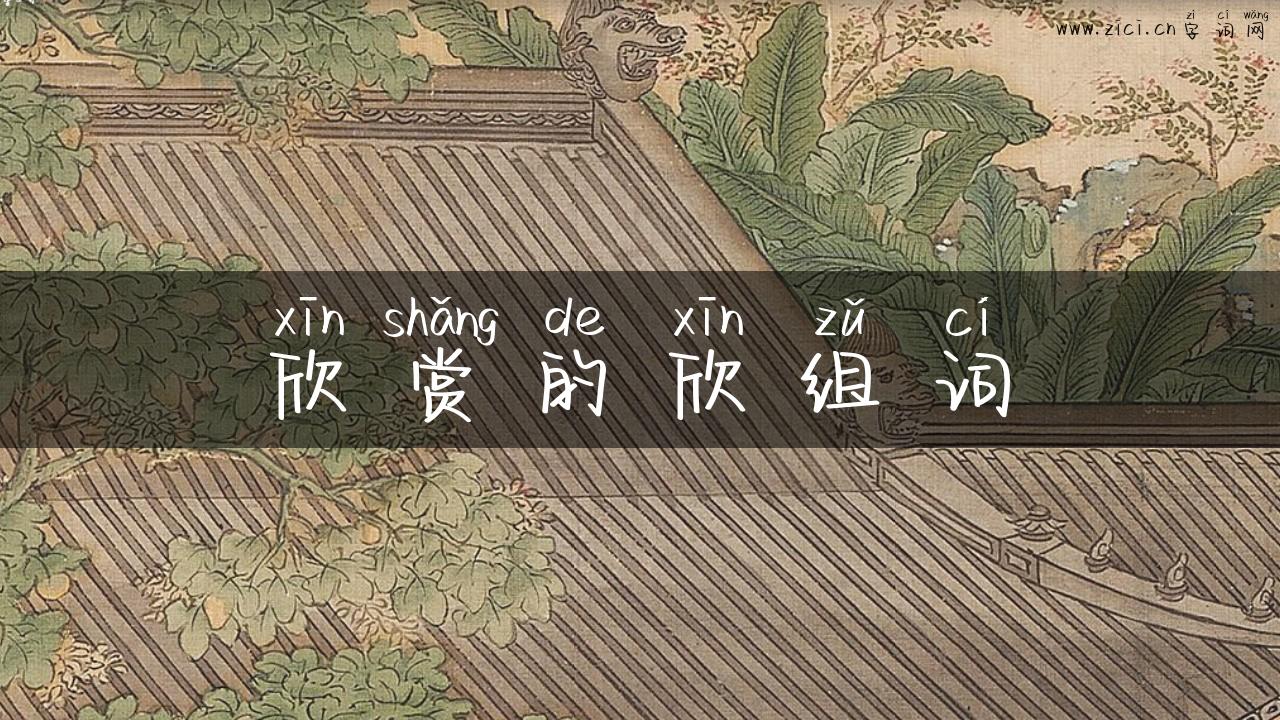 zì cí wǎng
www.zici.cn 字词网
xīn shǎng de xīn zǔ cí
欣赏的欣组词